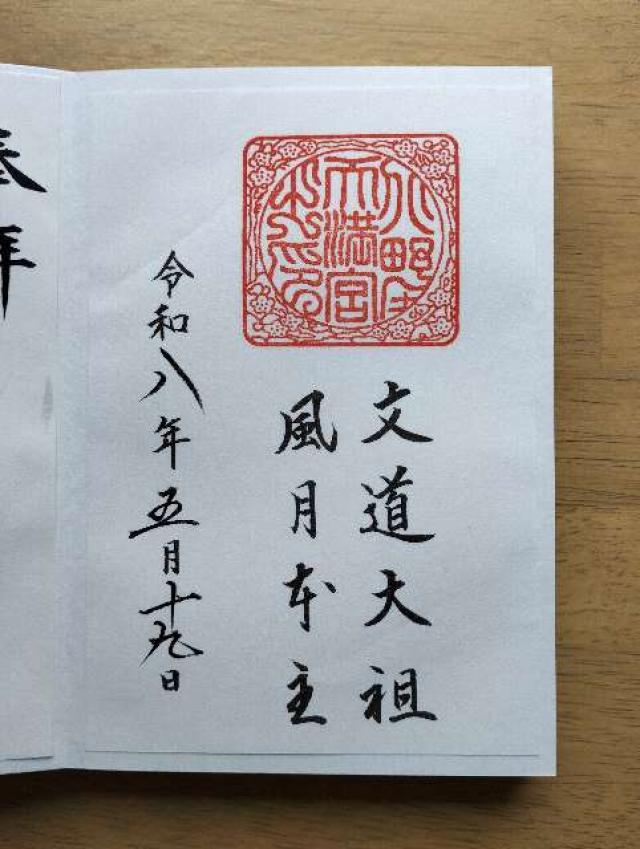 北野
天満宮
文道大祖
風月本主
令和八年五月十九日